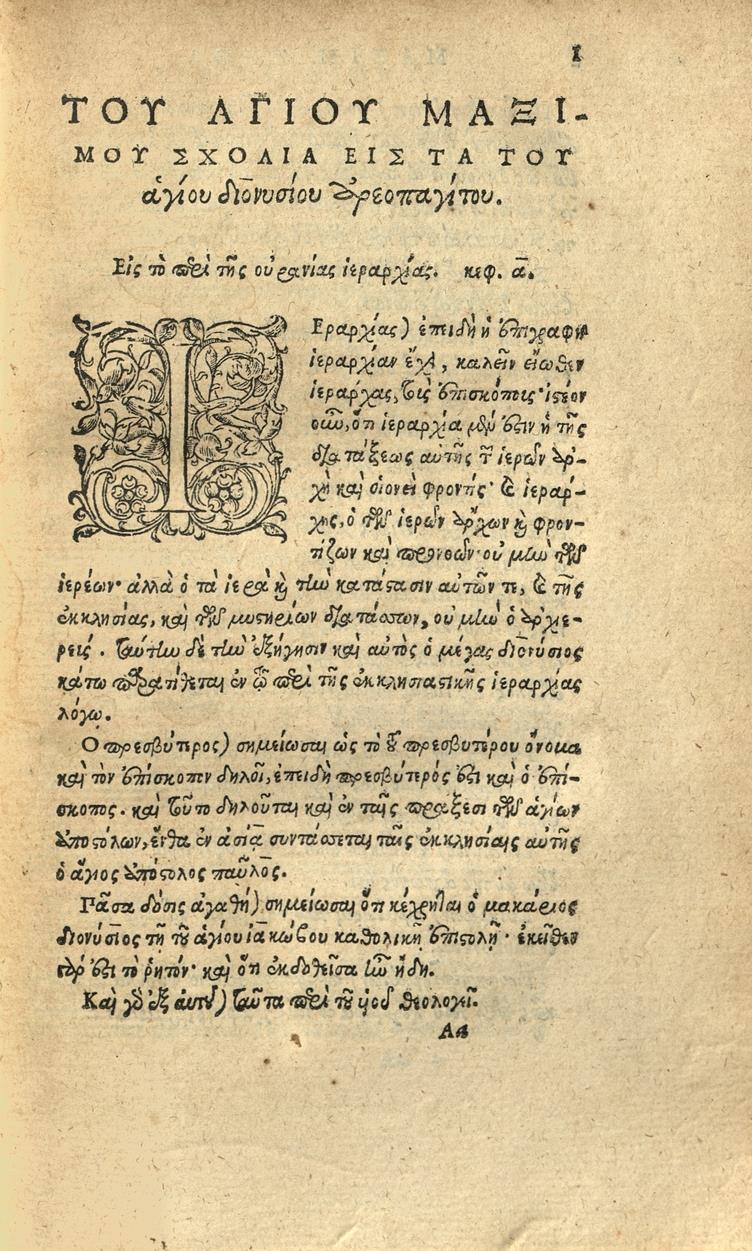 1
ΤΟΥ ΑΓΙΟΥ ΜΑΞΙ-
ΜΟΥ ΣΧΟΛΙΑ ΕΙΣ ΤΑ ΤΟΥ
ἁγίου διονυσίου ἀρεοπαγίτου.
Εἰς τὸ περὶ τῆς οὐρανίας ἱεραρχίας. κεφ. α̅.
ΙΕραρχίας) ἐπειδὴ ἡ ἐπιγραφὴ
ἱεραρχίαν ἔχει, καλεῖν εἴωθεν
ἱεράρχας, τοὺς ἐπισκόπους· ἰστέον
οὖν, ὅτι ἱεραρχία μέν ἐστιν ἡ τῆς
διατάξεως αὐτῆς τῶν ἱερῶν ἀρ-
χὴ καὶ οἱονεὶ φροντίς· καὶ ἱεράρ-
χης, ὁ τῶν ἱερῶν ἄρχων καὶ φρον-
τίζων καὶ προνοῶν· οὐ μὴν τῶν
ἱερέων· ἀλλὰ ὁ τὰ ἱερὰ καὶ τὴν κατάστασιν αὐτῶν τε, καὶ τῆς
ἐκκλησίας, καὶ τῶν μυστηρίων διατάσσων, οὐ μὴν ὁ ἀρχιε-
ρεύς. ταύτην δὲ τὴν ἐξήγησιν καὶ αὐτὸς ὁ μέγας διονύσιος
κάτω παρατίθεται ἐν τῷ περὶ τῆς ἐκκλησιαστικῆς ἱεραρχίας
λόγῳ.
Ο πρεσβύτερος) σημείωσαι ὡς τὸ τοῦ πρεσβυτέρου ὄνομα
καὶ τὸν ἐπίσκοπον δηλοῖ, ἐπειδὴ πρεσβύτερός ἐστι καὶ ὁ ἐπί-
σκοπος. καὶ τοῦτο δηλοῦται καὶ ἐν ταῖς πράξεσι τῶν ἁγίων
ἀποστόλων, ἔνθα ἐν ἀσίᾳ συντάσσεται ταῖς ἐκκλησίαις αὐτῆς
ὁ ἅγιος ἀπόστολος παῦλος.
Πᾶσα δόσις ἀγαθή) σημείωσαι ὅτι κέχρηται ὁ μακάριος
διονύσιος τῇ τοῦ ἁγίου ἰακώβου καθολικῇ ἐπιστολῇ· ἐκεῖθεν
γάρ ἐστι τὸ ῥητόν· καὶ ὅτι ἐκδοθεῖσα ἦν ἤδη.
Καὶ γὰρ ἐξ αὐτοῦ) ταῦτα περὶ τοῦ υἱοῦ θεολογεῖ.
Aa